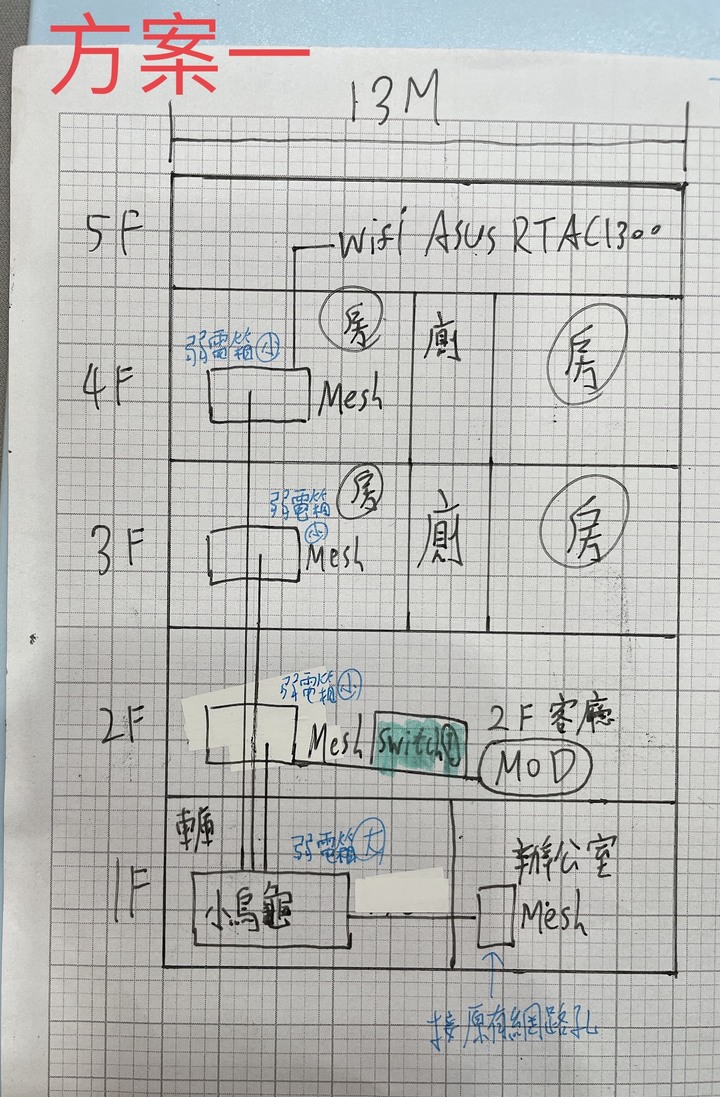 方案一
13M
5F
Wifi ASUS RTAC1300
4F
弱電箱小
房
廁
房
Mesh
3F
弱電箱小
房
廁
房
Mesh
2F
弱電箱小
Mesh
Switch
2F 客廳
MOD
1F
車庫
弱電箱大
小烏龜
辦公室
Mesh
接原有網路孔